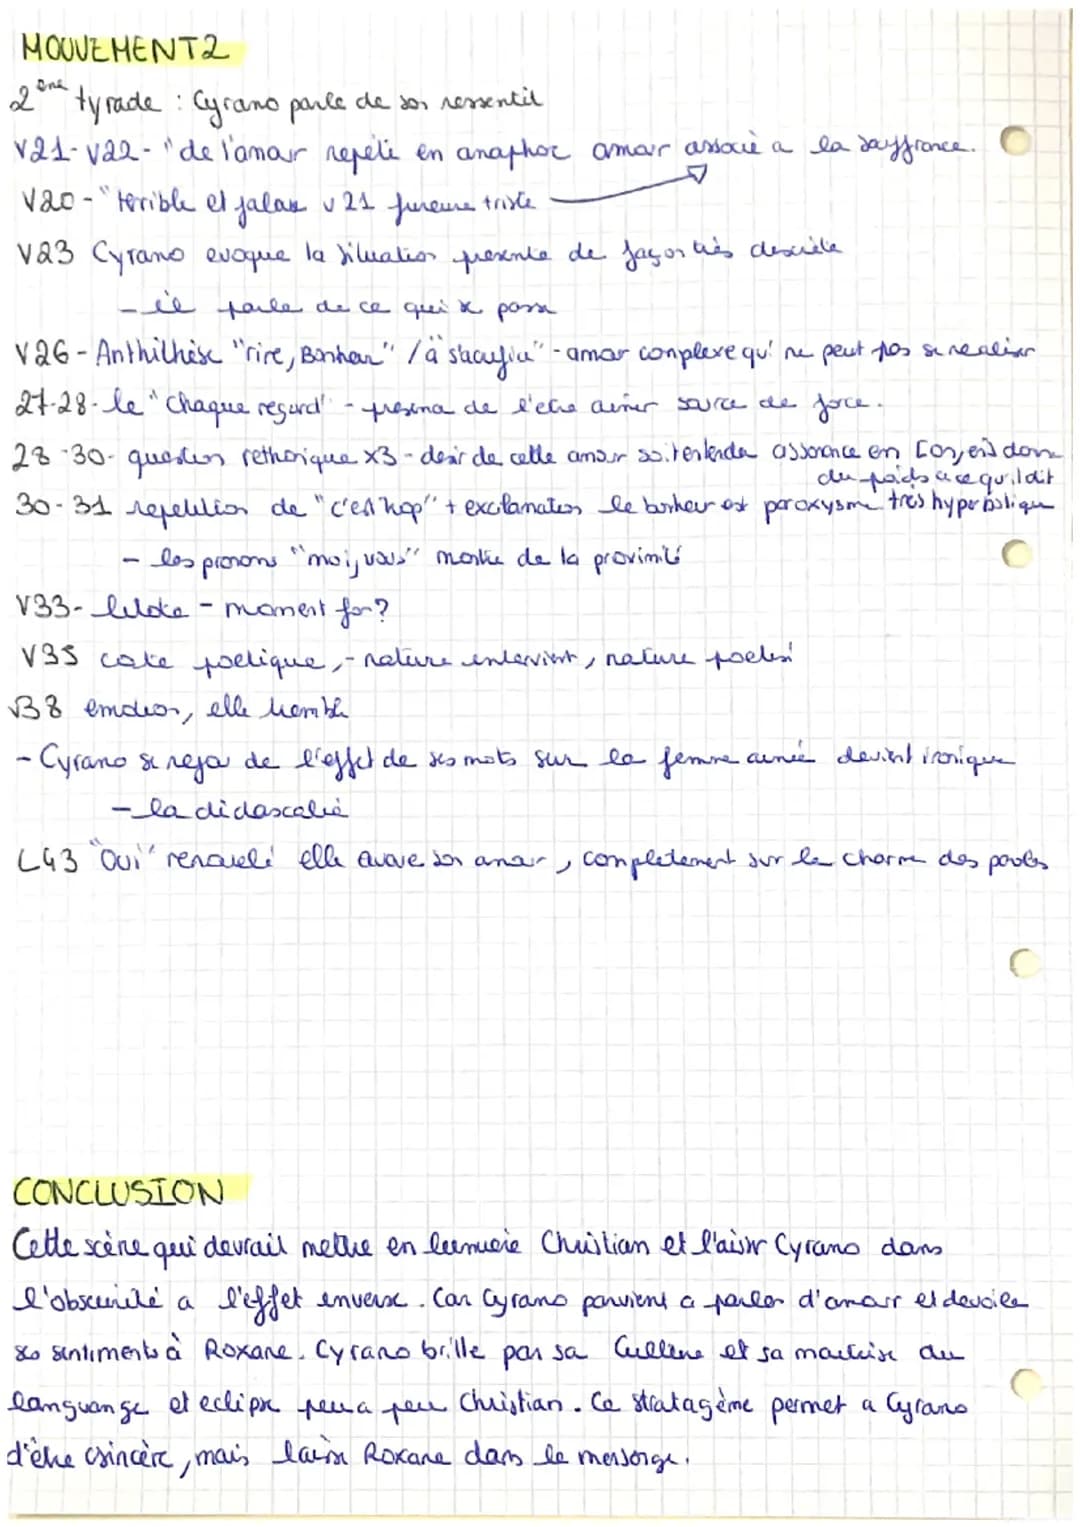 MOUVEMENT2
2ème tyrade : Cyrano parle de son ressentil
V21-V22- "de l'amour repété en anaphor amour associé a la souffrance.
V20-"terrible et jaloux v21 fureure triste
V23 Cyrano evoque la situation presente de façon très discrète
- il parle de ce qui se passe
V26 - Anthithèse "rire, Bonheur" / "a sacrifice" - amour complexe qui ne peut pas se realiser
27-28- le "chaque regard" - presence de l'etre aimer source de force.
28-30- question rethorique x3 - desir de cette amour soit entendu assonance en [on, en] donne du poids a ce qu'il dit
30-31 repetition de "c'est trop" + exclamation le bonheur est paroxysme très hyperbolique
- les pronoms "moi, vous" montre de la proximité
V33- litote - moment fort?
V35 cote poetique, - nature intervient, nature poetisé
V38 emotion, elle tremble
- Cyrano se rejoui de l'effet de ses mots sur la femme aimée devient ironique
- la didascalie
L43 "Oui" renouvelé elle avoue son amour, completement sur le charme des paroles
CONCLUSION
Cette scène qui devrait mettre en lumière Christian et laisser Cyrano dans
l'obscurité a l'effet inverse. Car Cyrano parvient a parler d'amour et devoile
ses sentiments à Roxane. Cyrano brille par sa culture et sa maitrise du
languange et eclipse peu a peu Christian. Ce stratagème permet a Cyrano
d'être sincère, mais laisse Roxane dans le mensonge.